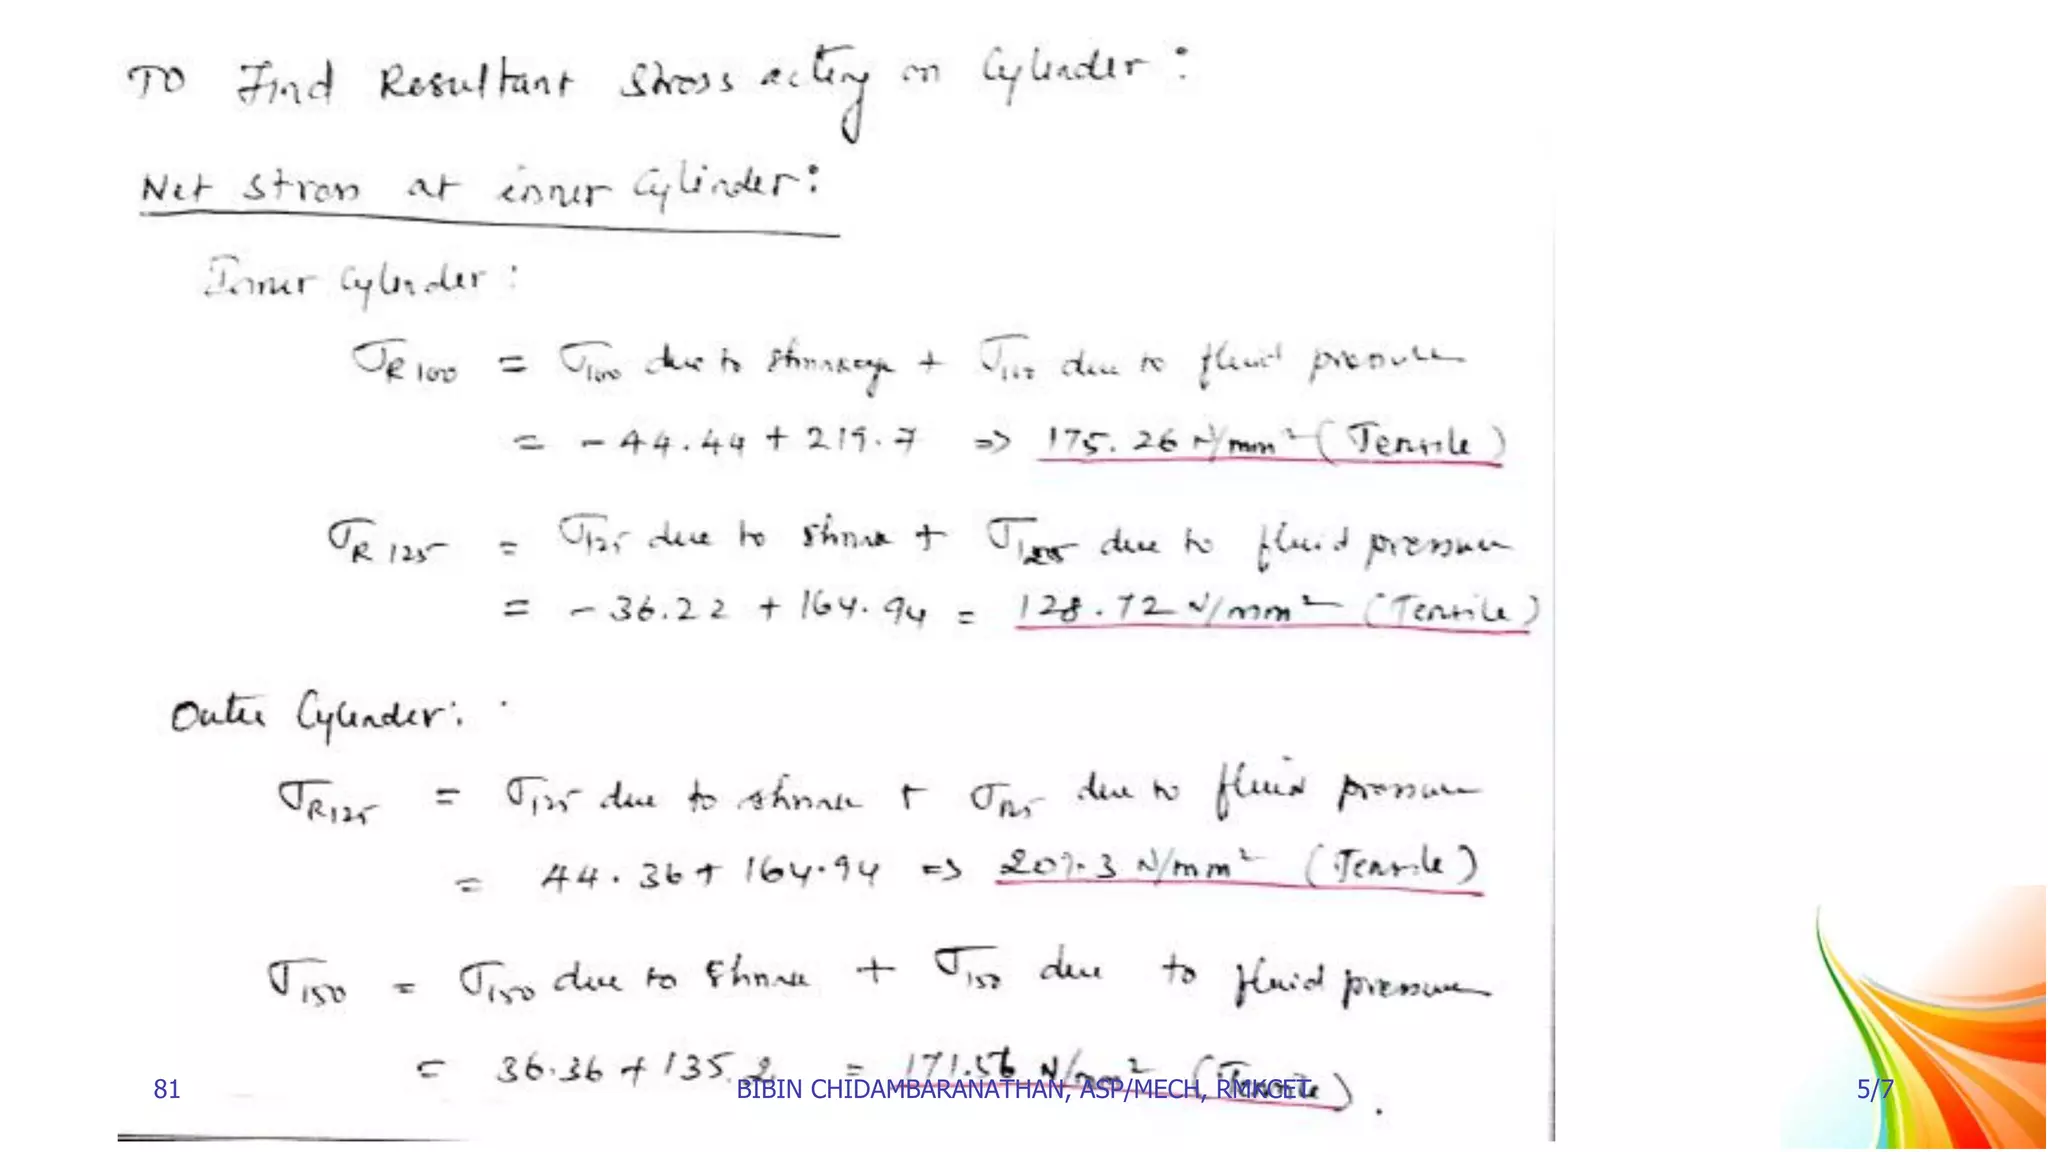 TO Find Resultant Stress acting on Cylinder :
Net stress at inner Cylinder :
Inner Cylinder :
σR100 = σ100 due to shrinkage + σ100 due to fluid pressure
= - 44.44 + 219.7 => 175.26 N/mm² ( Tensile )
σR125 = σ125 due to shrink + σ125 due to fluid pressure
= - 36.22 + 164.94 = 128.72 N/mm² ( Tensile )
Outer Cylinder :
σR125 = σ125 due to shrink + σ125 due to fluid pressure
= 44.36 + 164.94 => 209.3 N/mm² ( Tensile )
σ150 = σ150 due to shrink + σ150 due to fluid pressure
= 36.36 + 135.2 = 171.56 N/mm² ( Tensile ) .
81 BIBIN CHIDAMBARANATHAN, ASP/MECH, RMKCET 5/7